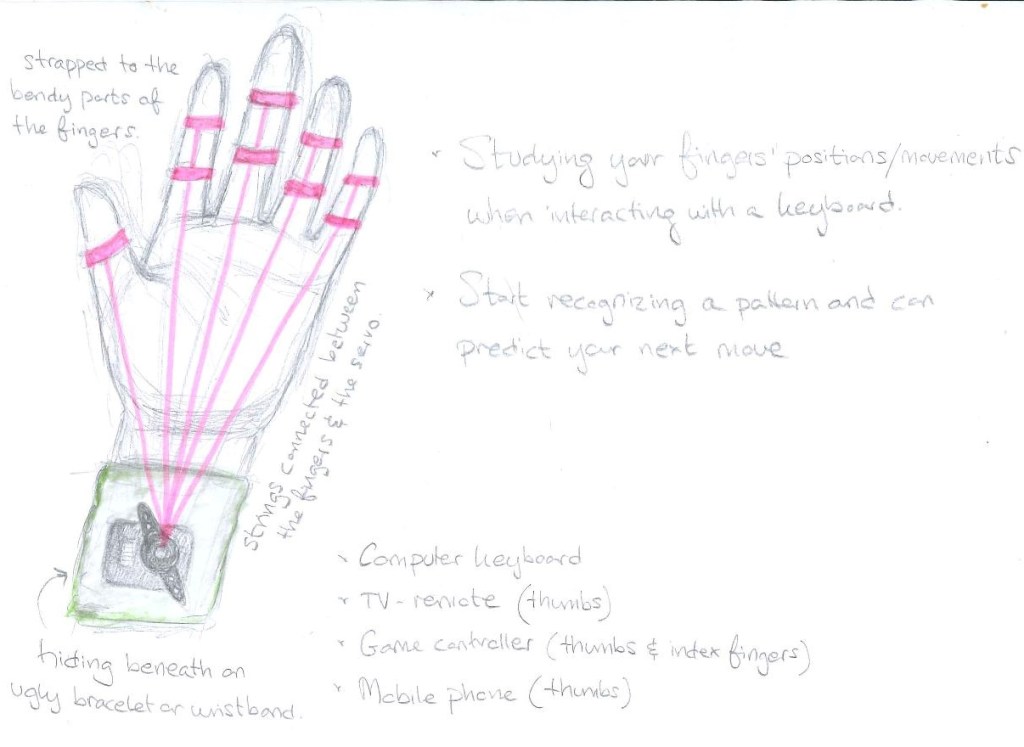 strapped to the
bendy parts of
the fingers.
* Studying your fingers' positions/movements
when interacting with a keyboard.
* Start recognizing a pattern and can
predict your next move
strings connected between
the fingers & the servo.
* Computer keyboard
* TV-remote (thumbs)
* Game controller (thumbs & index fingers)
* Mobile phone (thumbs)
hiding beneath an
ugly bracelet or wristband.